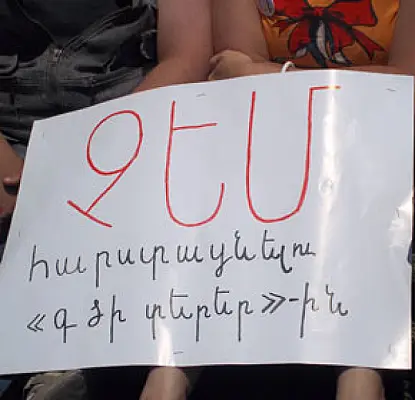 ՉԵՄ
հարստացնելու
«գծի տերեր»-ին